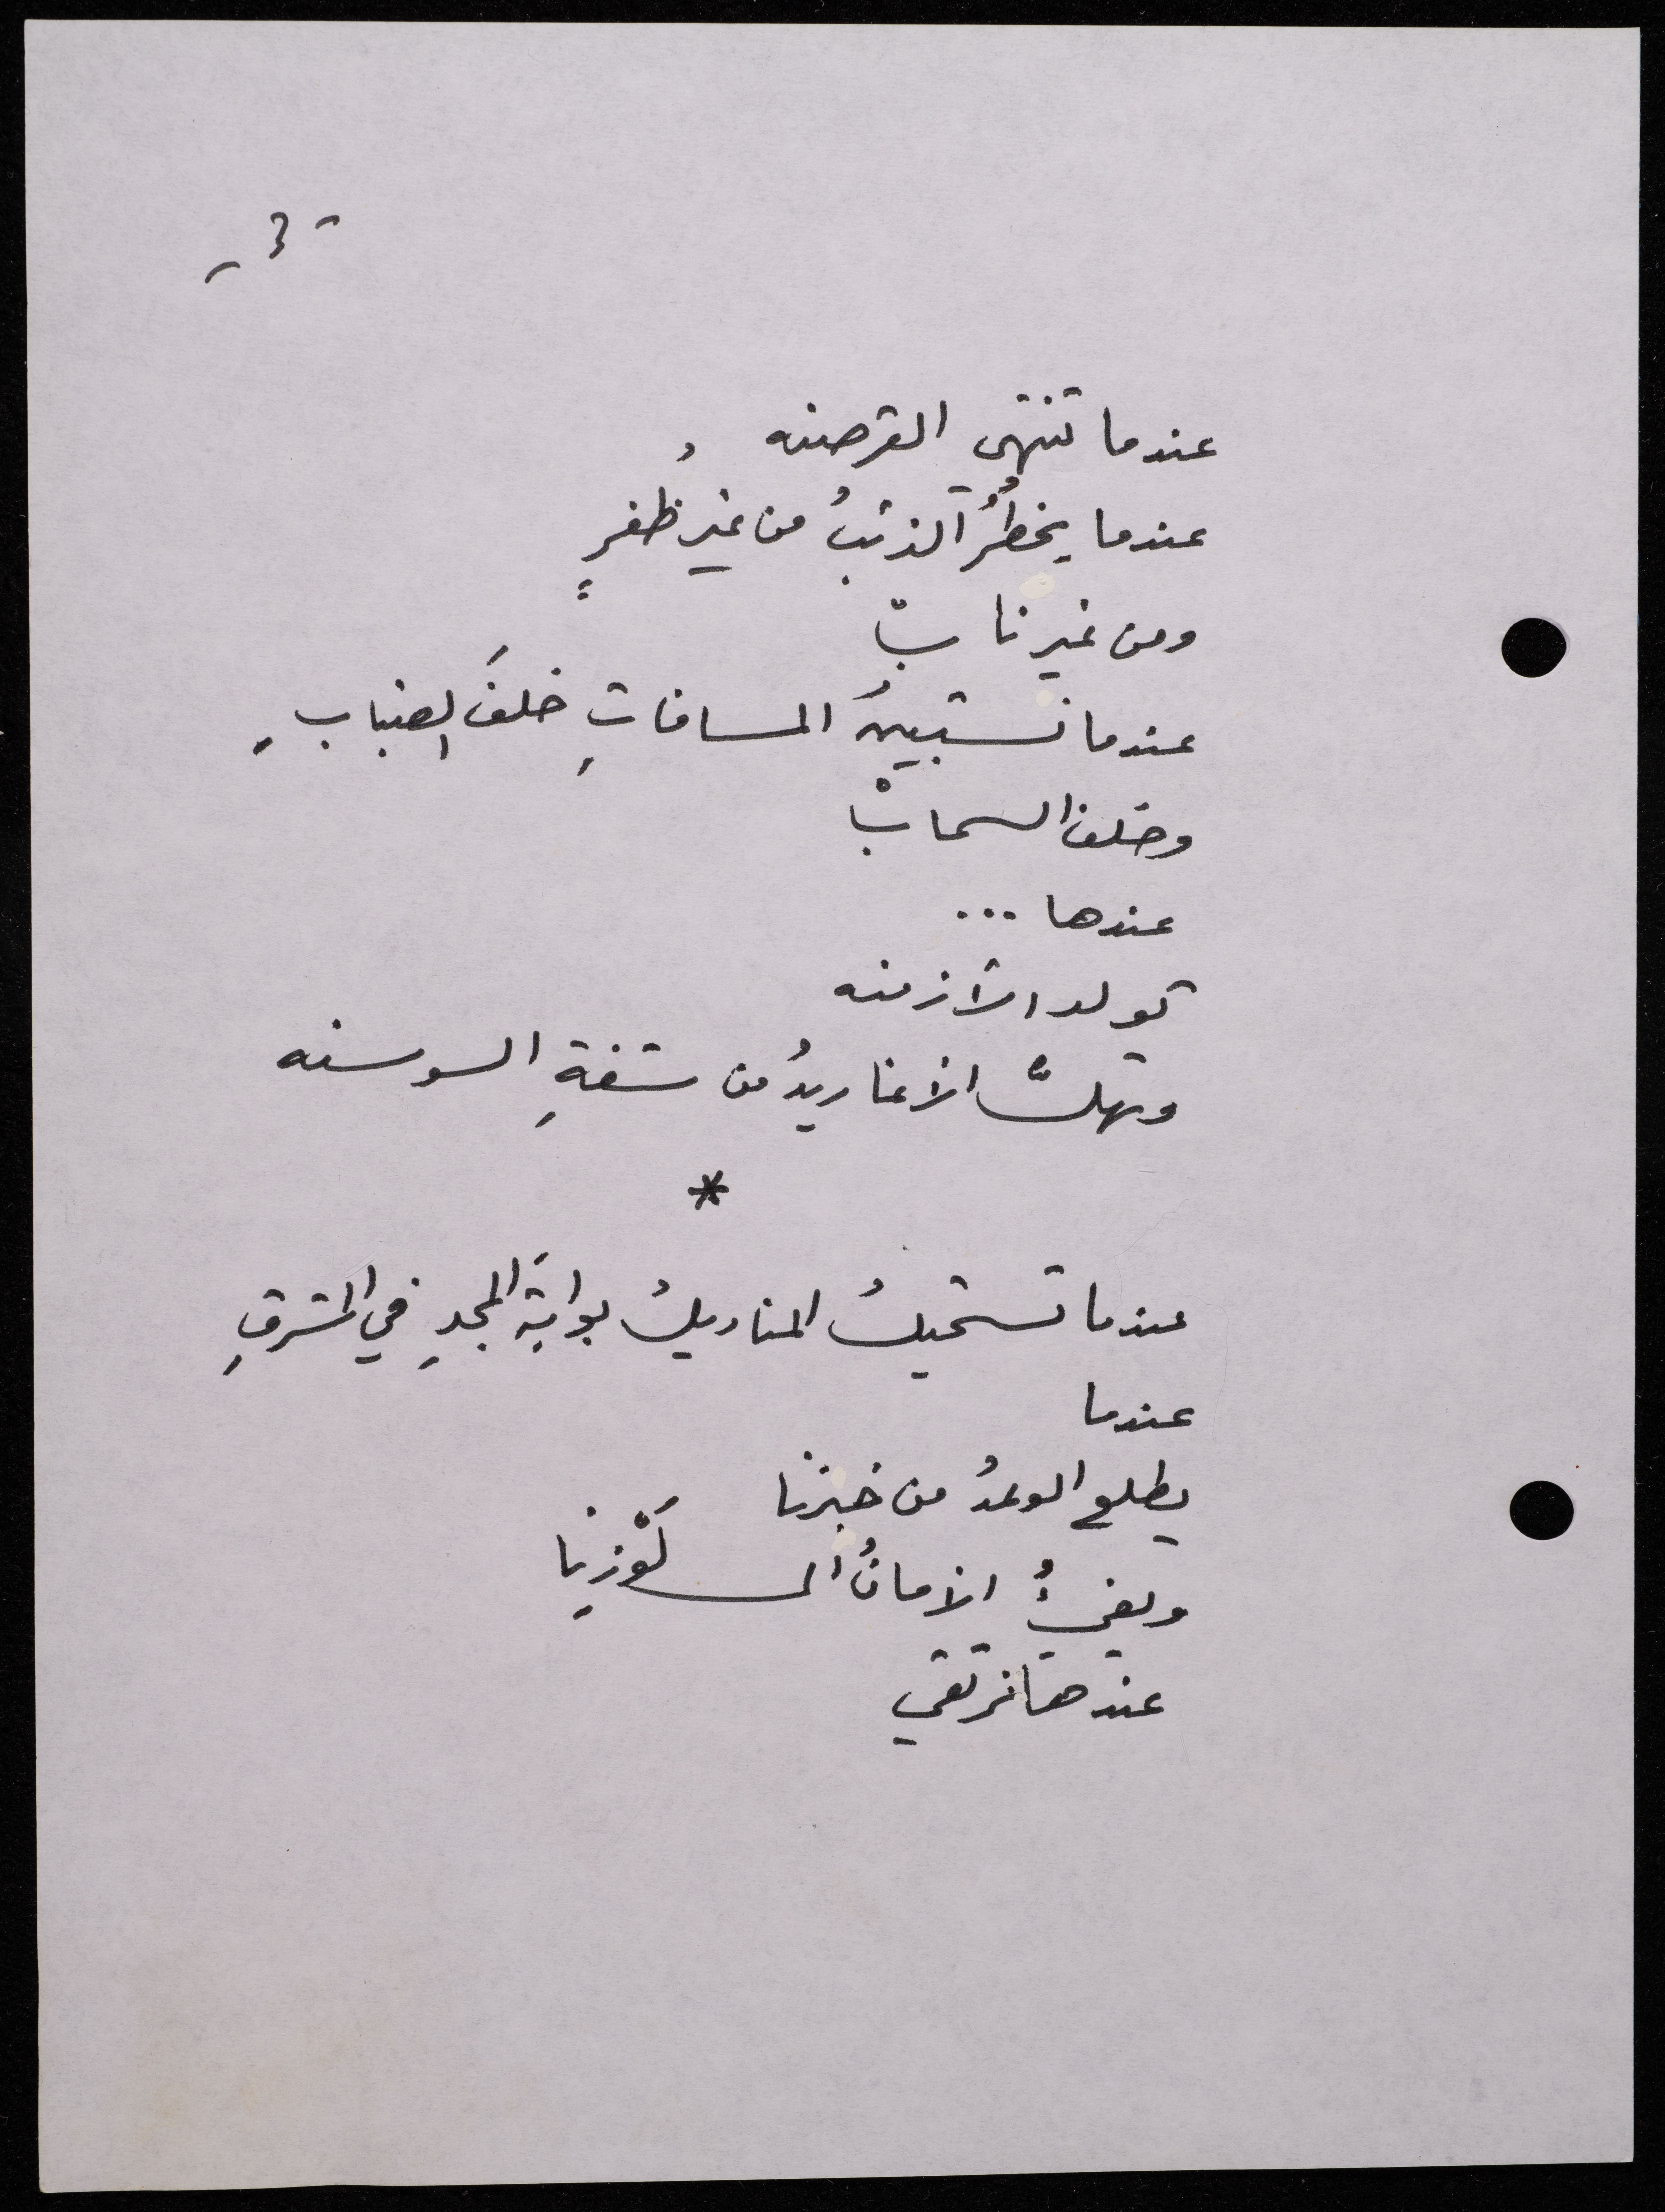 - 3 -
عندما تنتهي القرصنه
عندما يخطُرُ الذئبُ من غير ظُفرٍ
ومن غير نابْ
عندما نستبينُ المسافاتِ خلفَ الضبابِ
وخلف السحابْ
عندها ...
تولد الأزمنه
وتهلُّ الأغاريدُ من شفةِ السوسنه
*
عندما تستحيلُ المناديلُ بوابةَ المجدِ في المشرقِ
عندما
يطلع الوعدُ من خبزنا
ويفيءُ الأمانُ الى لَوْزِنا
عندها نرتقي